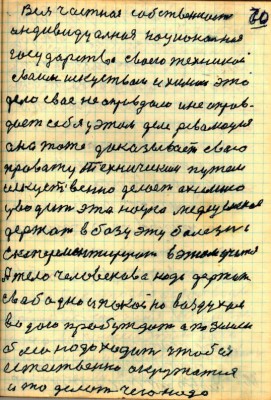 Вся частная собственност 70
индивидуалная национална
государство своего техникой
своим искуством и химии это
дело свае не оправдало и не оправ-
дает себя у этом деле революция
она тоже доказывает свою
правату техничиским путьом
искуственно делает химию
уводит эта наука медецинская
держат в базу эту болезнь
експерементируют в этом
А тело человекова надо держат
свабодно и спокойно воздухом
водою пробуждат а по земли
босым надо ходит чтобы
естественно окружатся
и то делат чего надо